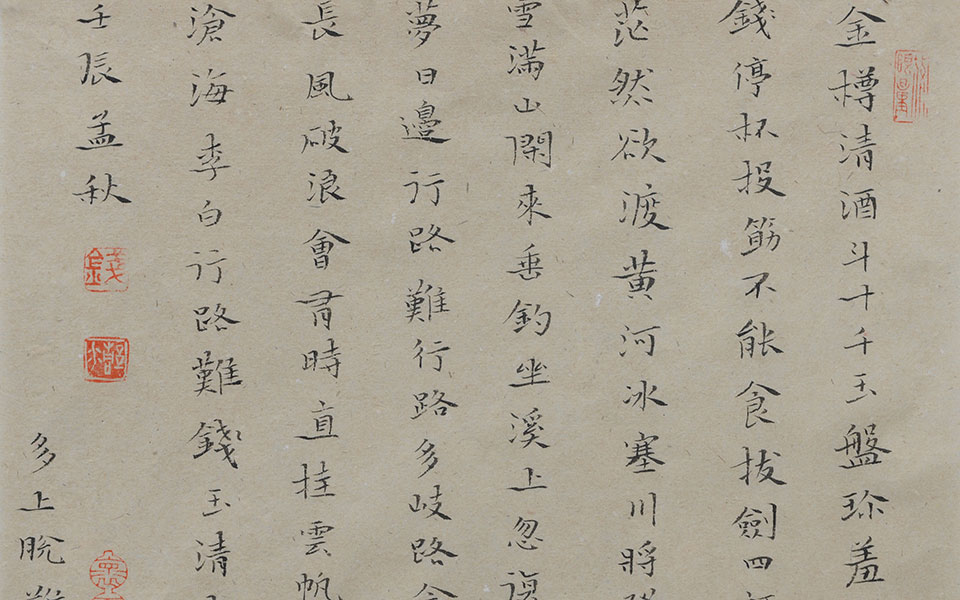 金樽清酒斗十千玉盤珎羞
錢停杯投筋不能食拔劍四
茫然欲渡黃河冰塞川將
雪滿山閑來垂釣坐溪上忽復
夢日邊行路難行路多岐路今
長風破浪會有時直挂雲帆
滄海李白行路難錢玉清
壬辰孟秋
錢
多上脫難